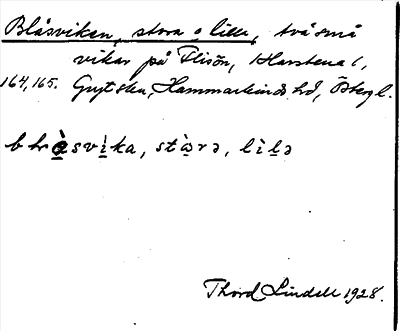 Blåsviken, stora o lilla, två små
vikar på Flisön, Harstena 1,
164,165. Gryt skn, Hammarkinds hd, Östergl.
blåsvika, stòrə, lìlə
Thord Lindell 1928.